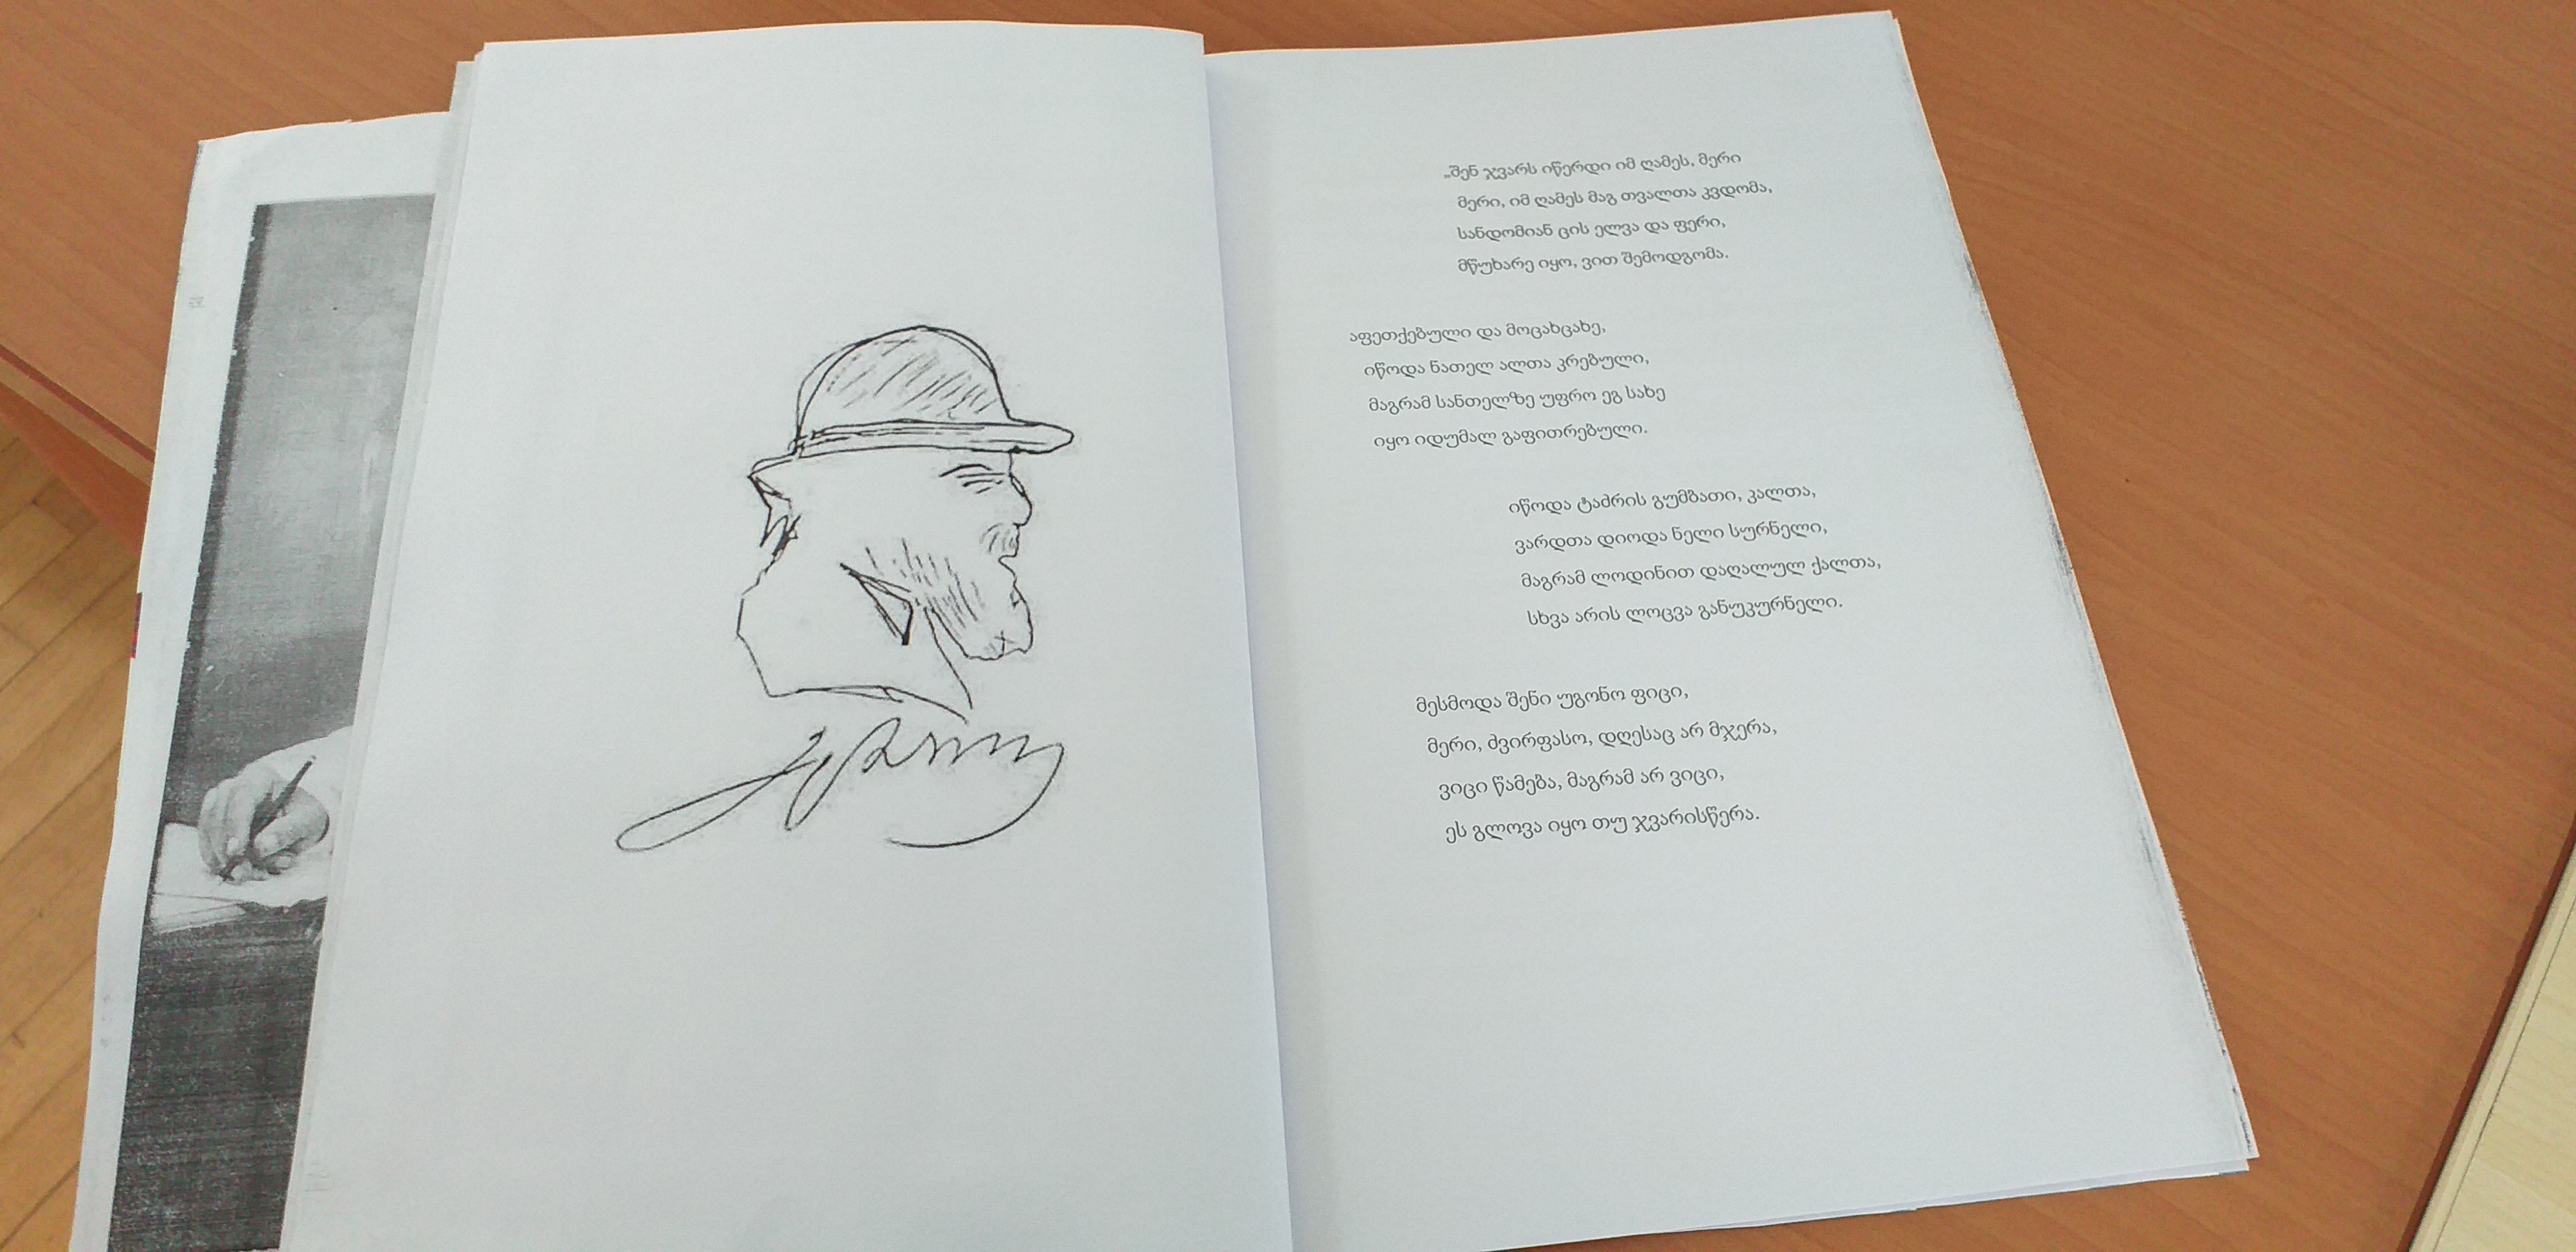 „შენ ჯვარს იწერდი იმ ღამეს, მერი
მერი, იმ ღამეს მაგ თვალთა კვდომა,
სანდომიან ცის ელვა და ფერი,
მწუხარე იყო, ვით შემოდგომა.
აფეთქებული და მოცახცახე,
იწოდა ნათელ ალთა კრებული,
მაგრამ სანთელზე უფრო ეგ სახე
იყო იდუმალ გაფითრებული.
იწოდა ტაძრის გუმბათი, კალთა,
ვარდთა დიოდა ნელი სურნელი,
მაგრამ ლოდინით დაღალულ ქალთა,
სხვა არის ლოცვა განუკურნელი.
მესმოდა შენი უგონო ფიცი,
მერი, ძვირფასო, დღესაც არ მჯერა,
ვიცი წამება, მაგრამ არ ვიცი,
ეს გლოვა იყო თუ ჯვარისწერა.